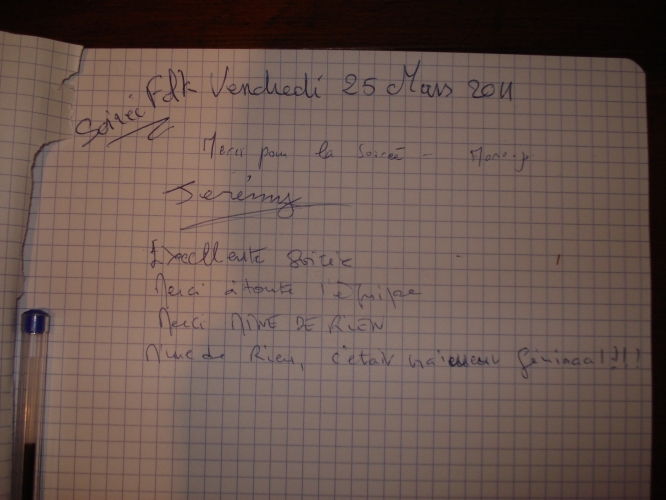 Soirée Fdk Vendredi 25 Mars 2011
Merci pour la Soirée -
Jérémy
Excellente Soirée
Merci à toute l'équipe
Merci MINE DE RIEN
Mine de Rien, c'était vraiment Génial!!!!